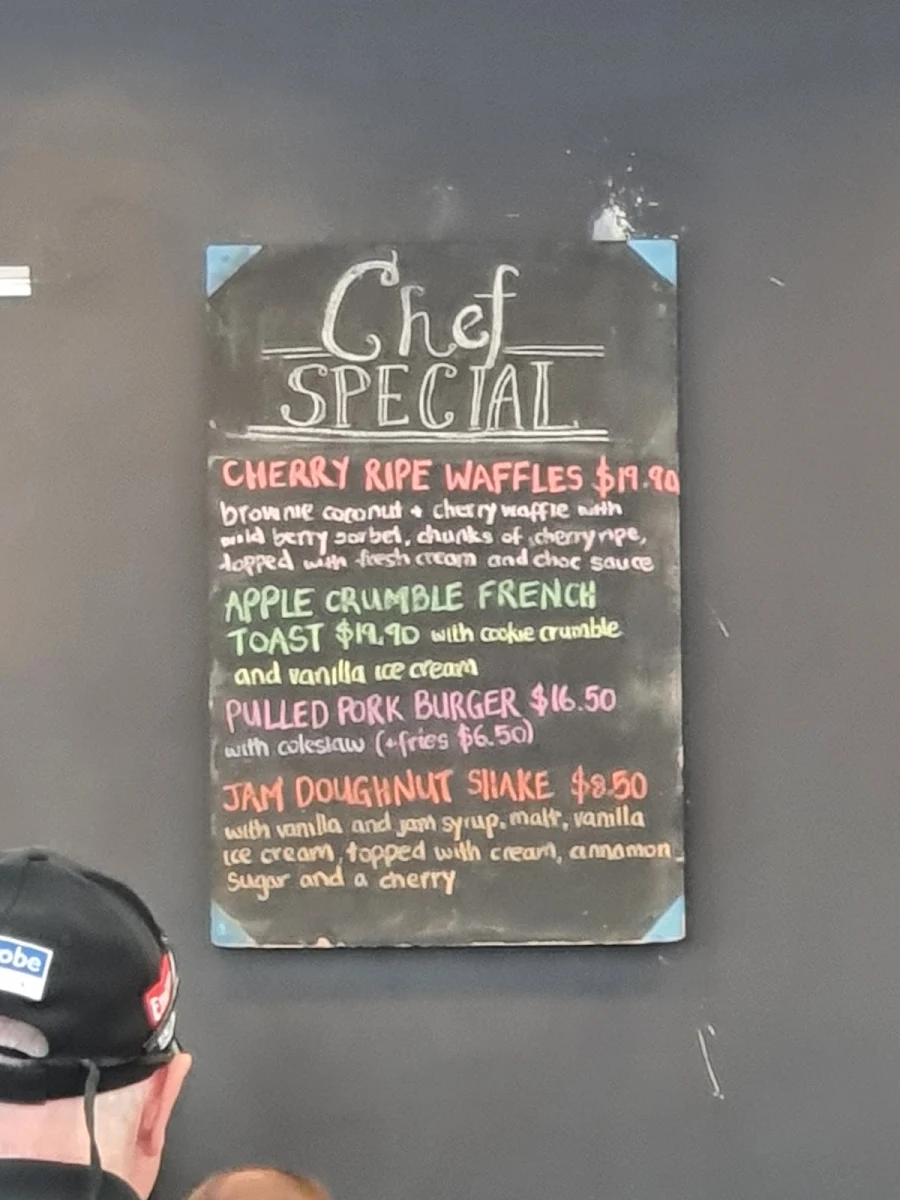 Chef
SPECIAL
CHERRY RIPE WAFFLES $19.90
brownie coconut + cherry waffle with
wild berry sorbet, chunks of cherry ripe,
topped with fresh cream and choc sauce
APPLE CRUMBLE FRENCH
TOAST $19.90 with cookie crumble
and vanilla ice cream
PULLED PORK BURGER $16.50
with coleslaw (+fries $6.50)
JAM DOUGHNUT SHAKE $8.50
with vanilla and jam syrup, malt, vanilla
ice cream, topped with cream, cinnamon
sugar and a cherry
obe